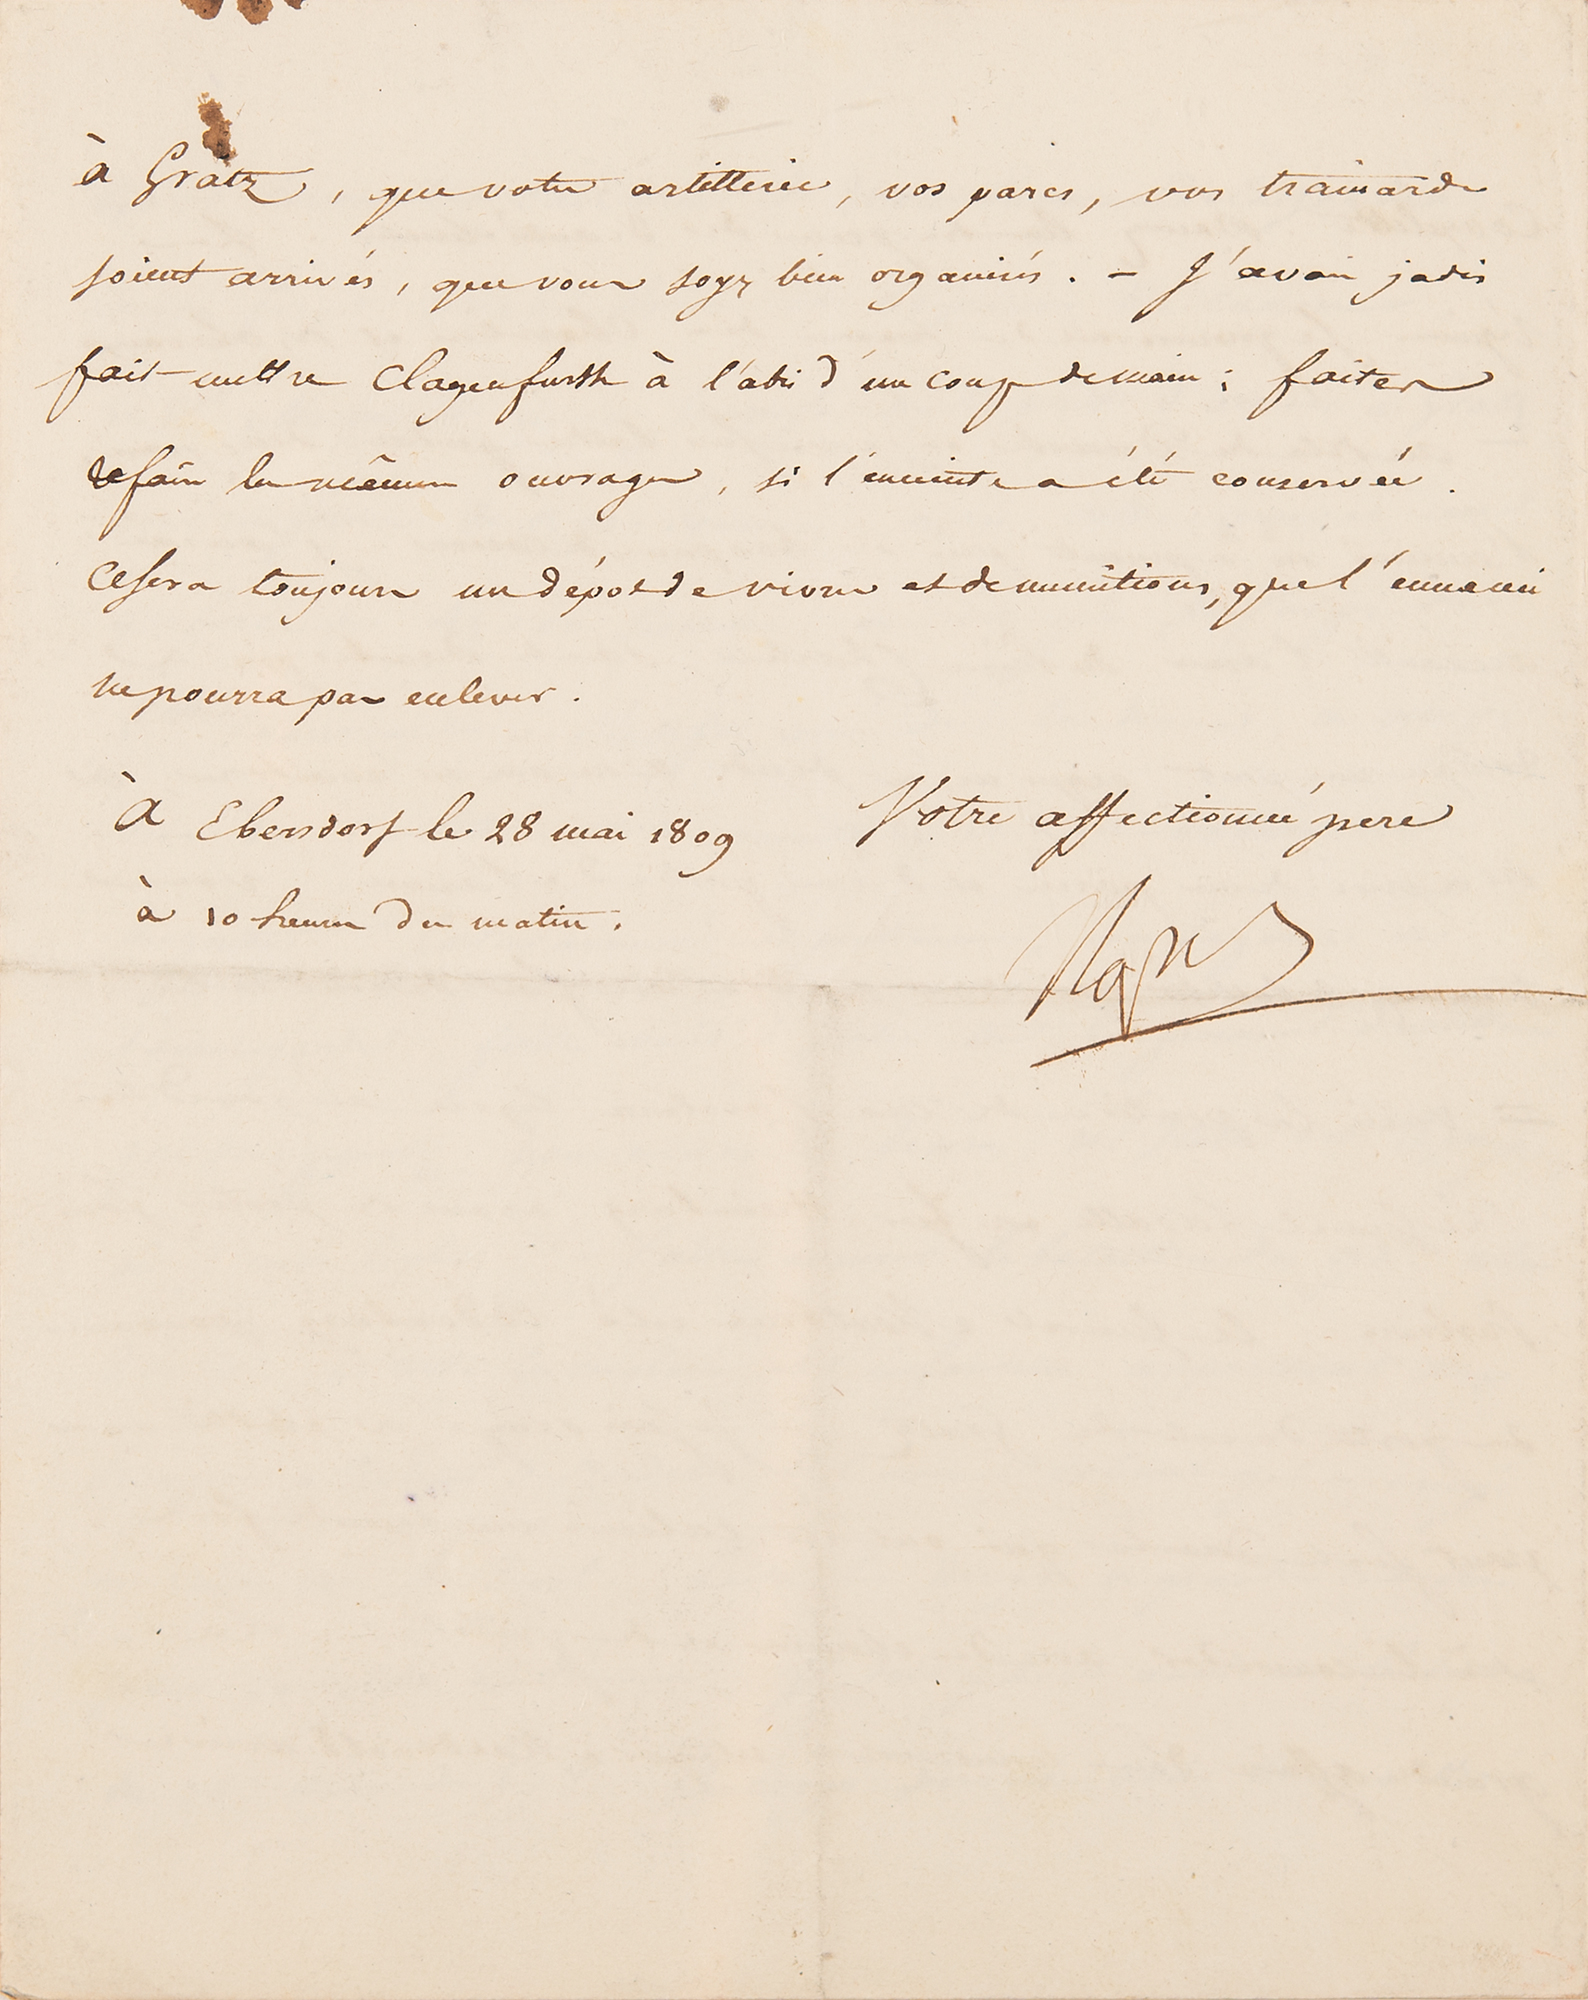 à Gratz, que votre artillerie, vos parcs, vos trainards
soient arrivés, que vous soyz bien organisés. - J'avais jadis
fait mettre Clagenfurth à l'abri d'un coup de main; faites
refaire les mêmes ouvrages, si l'enceinte a été conservée.
Ce sera toujours un dépot de vivres et de munitions, que l'ennemi
ne pourra pas enlever.
à Ebersdorf le 28 mai 1809
à 10 heures du matin.
Votre affectionné père
Nap